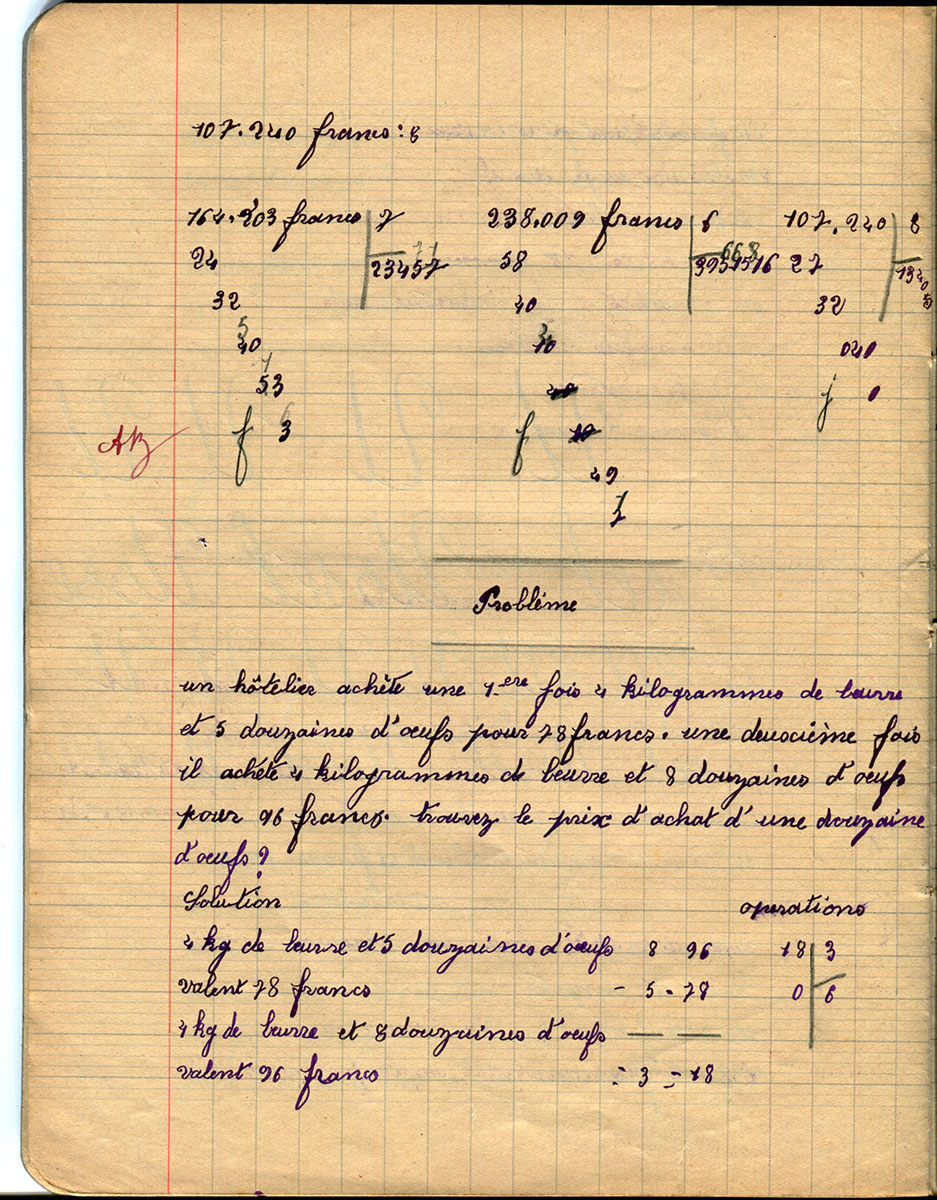 107.240 francs : 8
164.203 francs 7
24 23457
32
40
53
3
238.009 francs 6
58
40
49
107.240 8
27 13405
32
040
0
AB
Problème
un hôtelier achète une 1ere fois 4 kilogrammes de beurre
et 5 douzaines d'œufs pour 78 francs. une deuxcième fois
il achète 4 kilogrammes de beurre et 8 douzaines d'œufs
pour 96 francs. trouvez le prix d'achat d'une douzaine
d'œufs ?
Solution operations
4 kg de beurre et 5 douzaines d'œufs 8 96 18 3
valent 78 francs - 5 - 78 0 6
4 kg de beurre et 8 douzaines d'œufs
valent 96 francs = 3 = 18